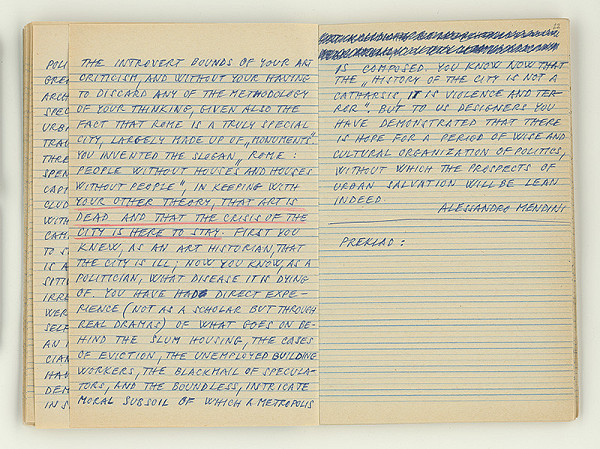 POLI
GREA
ARCH
SPEC
URBI
THRE
SPEN
CAPI
CLUD
WITH
TO S
IS A
SITU
IRRE
WERE
SELF
AN I
CIAN
HAV
DEM
IN S
THE INTROVERT BOUNDS OF YOUR ART
CRITICISM, AND WITHOUT YOUR HAVING
TO DISCARD ANY OF THE METHODOLOGY
OF YOUR THINKING, GIVEN ALSO THE
FACT THAT ROME IS A TRULY SPECIAL
CITY, LARGELY MADE UP OF „MONUMENTS“.
YOU INVENTED THE SLOGAN „ROME:
PEOPLE WITHOUT HOUSES AND HOUSES
WITHOUT PEOPLE“, IN KEEPING WITH
YOUR OTHER THEORY, THAT ART IS
DEAD AND THAT THE CRISIS OF THE
CITY IS HERE TO STAY. FIRST YOU
KNEW, AS AN ART HISTORIAN, THAT
THE CITY IS ILL; NOW YOU KNOW, AS A
POLITICIAN, WHAT DISEASE IT IS DYING
OF. YOU HAVE HAD DIRECT EXPE-
RIENCE (NOT AS A SCHOLAR BUT THROUGH
REAL DRAMAS) OF WHAT GOES ON BE-
HIND THE SLUM HOUSING, THE CASES
OF EVICTION, THE UNEMPLOYED BUILDING
WORKERS, THE BLACKMAIL OF SPECULA-
TORS, AND THE BOUNDLESS, INTRICATE
MORAL SUBSOIL OF WHICH A METROPOLIS
IS COMPOSED. YOU KNOW NOW THAT
THE „HISTORY OF THE CITY IS NOT A
CATHARSIS, IT IS VIOLENCE AND TER-
ROR“. BUT TO US DESIGNERS YOU
HAVE DEMONSTRATED THAT THERE
IS HOPE FOR A PERIOD OF WISE AND
CULTURAL ORGANIZATION OF POLITICS,
WITHOUT WHICH THE PROSPECTS OF
URBAN SALVATION WILL BE LEAN
INDEED.
ALESSANDRO MENDINI
PREKLAD: